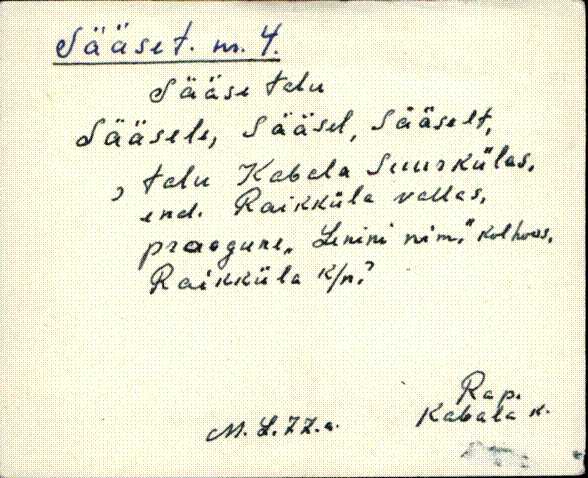 Sääset. m. 4.
Sääse talu
Sääsele, Sääsel, Sääselt,
, talu Kabala Suurkülas,
end. Raikküla vallas,
praegune „Lenini nim." kolhoos,
Raikküla k/n.?
Rap.
Kabala k.
M. L. 77.a.